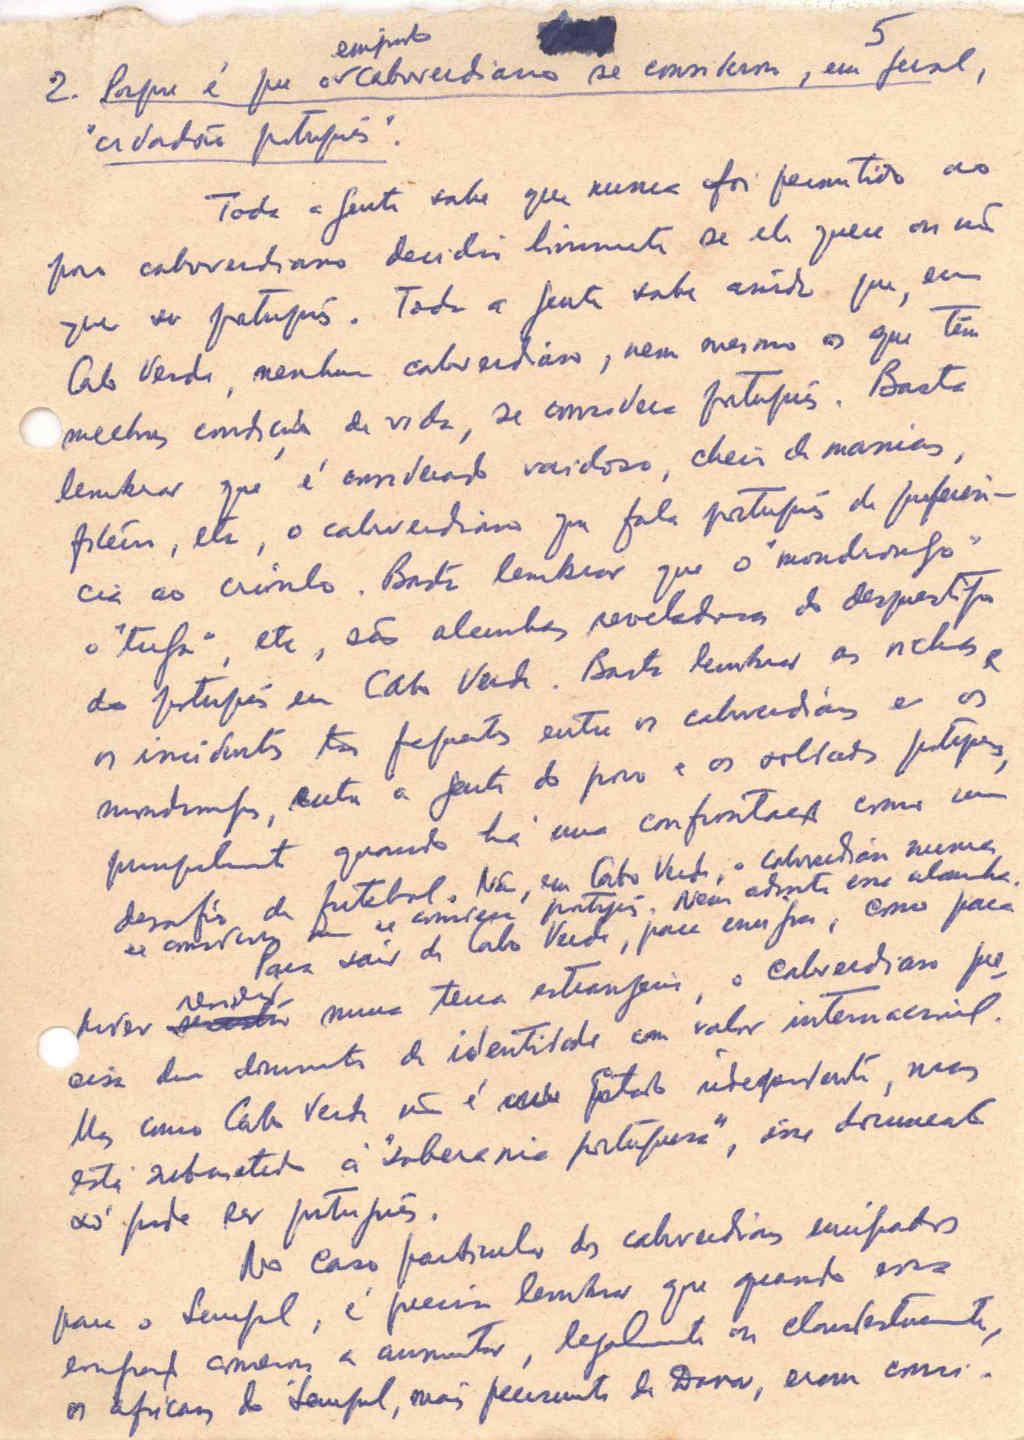 5
emigrado
2. Porque é que o caboverdiano se considera, em geral,
"cidadão português".
Toda a gente sabe que nunca foi permitido ao
povo caboverdiano decidir livremente se ele quere ou não
quer ser português. Toda a gente sabe ainda que, em
Cabo Verde, nenhum caboverdiano, nem mesmo os que têm
melhores condições de vida, se considera português. Basta
lembrar que é considerado vaidoso, cheio de manias,
etc, o caboverdiano que fala português de preferên-
cia ao crioulo. Basta lembrar que o "mondrongo"
o "tuga", etc, são alcunhas reveladoras do desprestígio
do português em Cabo Verde. Basta lembrar as rixas e
os incidentes tão frequentes entre os caboverdianos e os
mondrongos, entre a gente do povo e os soldados portugueses,
principalmente quando há uma confrontação como um
desafio de futebol. Não, em Cabo Verde, o caboverdiano nunca
se considerou nem se considera português. Nem adianta essa alcunha.
Para sair de Cabo Verde, para emigrar, como para
poder residir numa terra estrangeira, o caboverdiano pre-
cisa dum documento de identidade com valor internacional.
Mas como Cabo Verde não é um Estado independente, mas
está submetido à "soberania portuguesa", esse documento
só pode ser português.
No caso particular dos caboverdianos emigrados
para o Senegal, é preciso lembrar que quando essa
emigração começou a aumentar, legalmente ou clandestinamente,
os africanos do Senegal, mais precisamente de Dakar, eram consi-